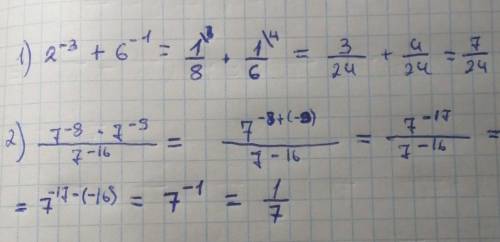 1) 2^{-3} + 6^{-1} = \frac{1^{\backslash 3}}{8} + \frac{1^{\backslash 4}}{6} = \frac{3}{24} + \frac{4}{24} = \frac{7}{24}
2) \frac{7^{-8} \cdot 7^{-9}}{7^{-16}} = \frac{7^{-8+(-9)}}{7^{-16}} = \frac{7^{-17}}{7^{-16}} =
= 7^{-17-(-16)} = 7^{-1} = \frac{1}{7}